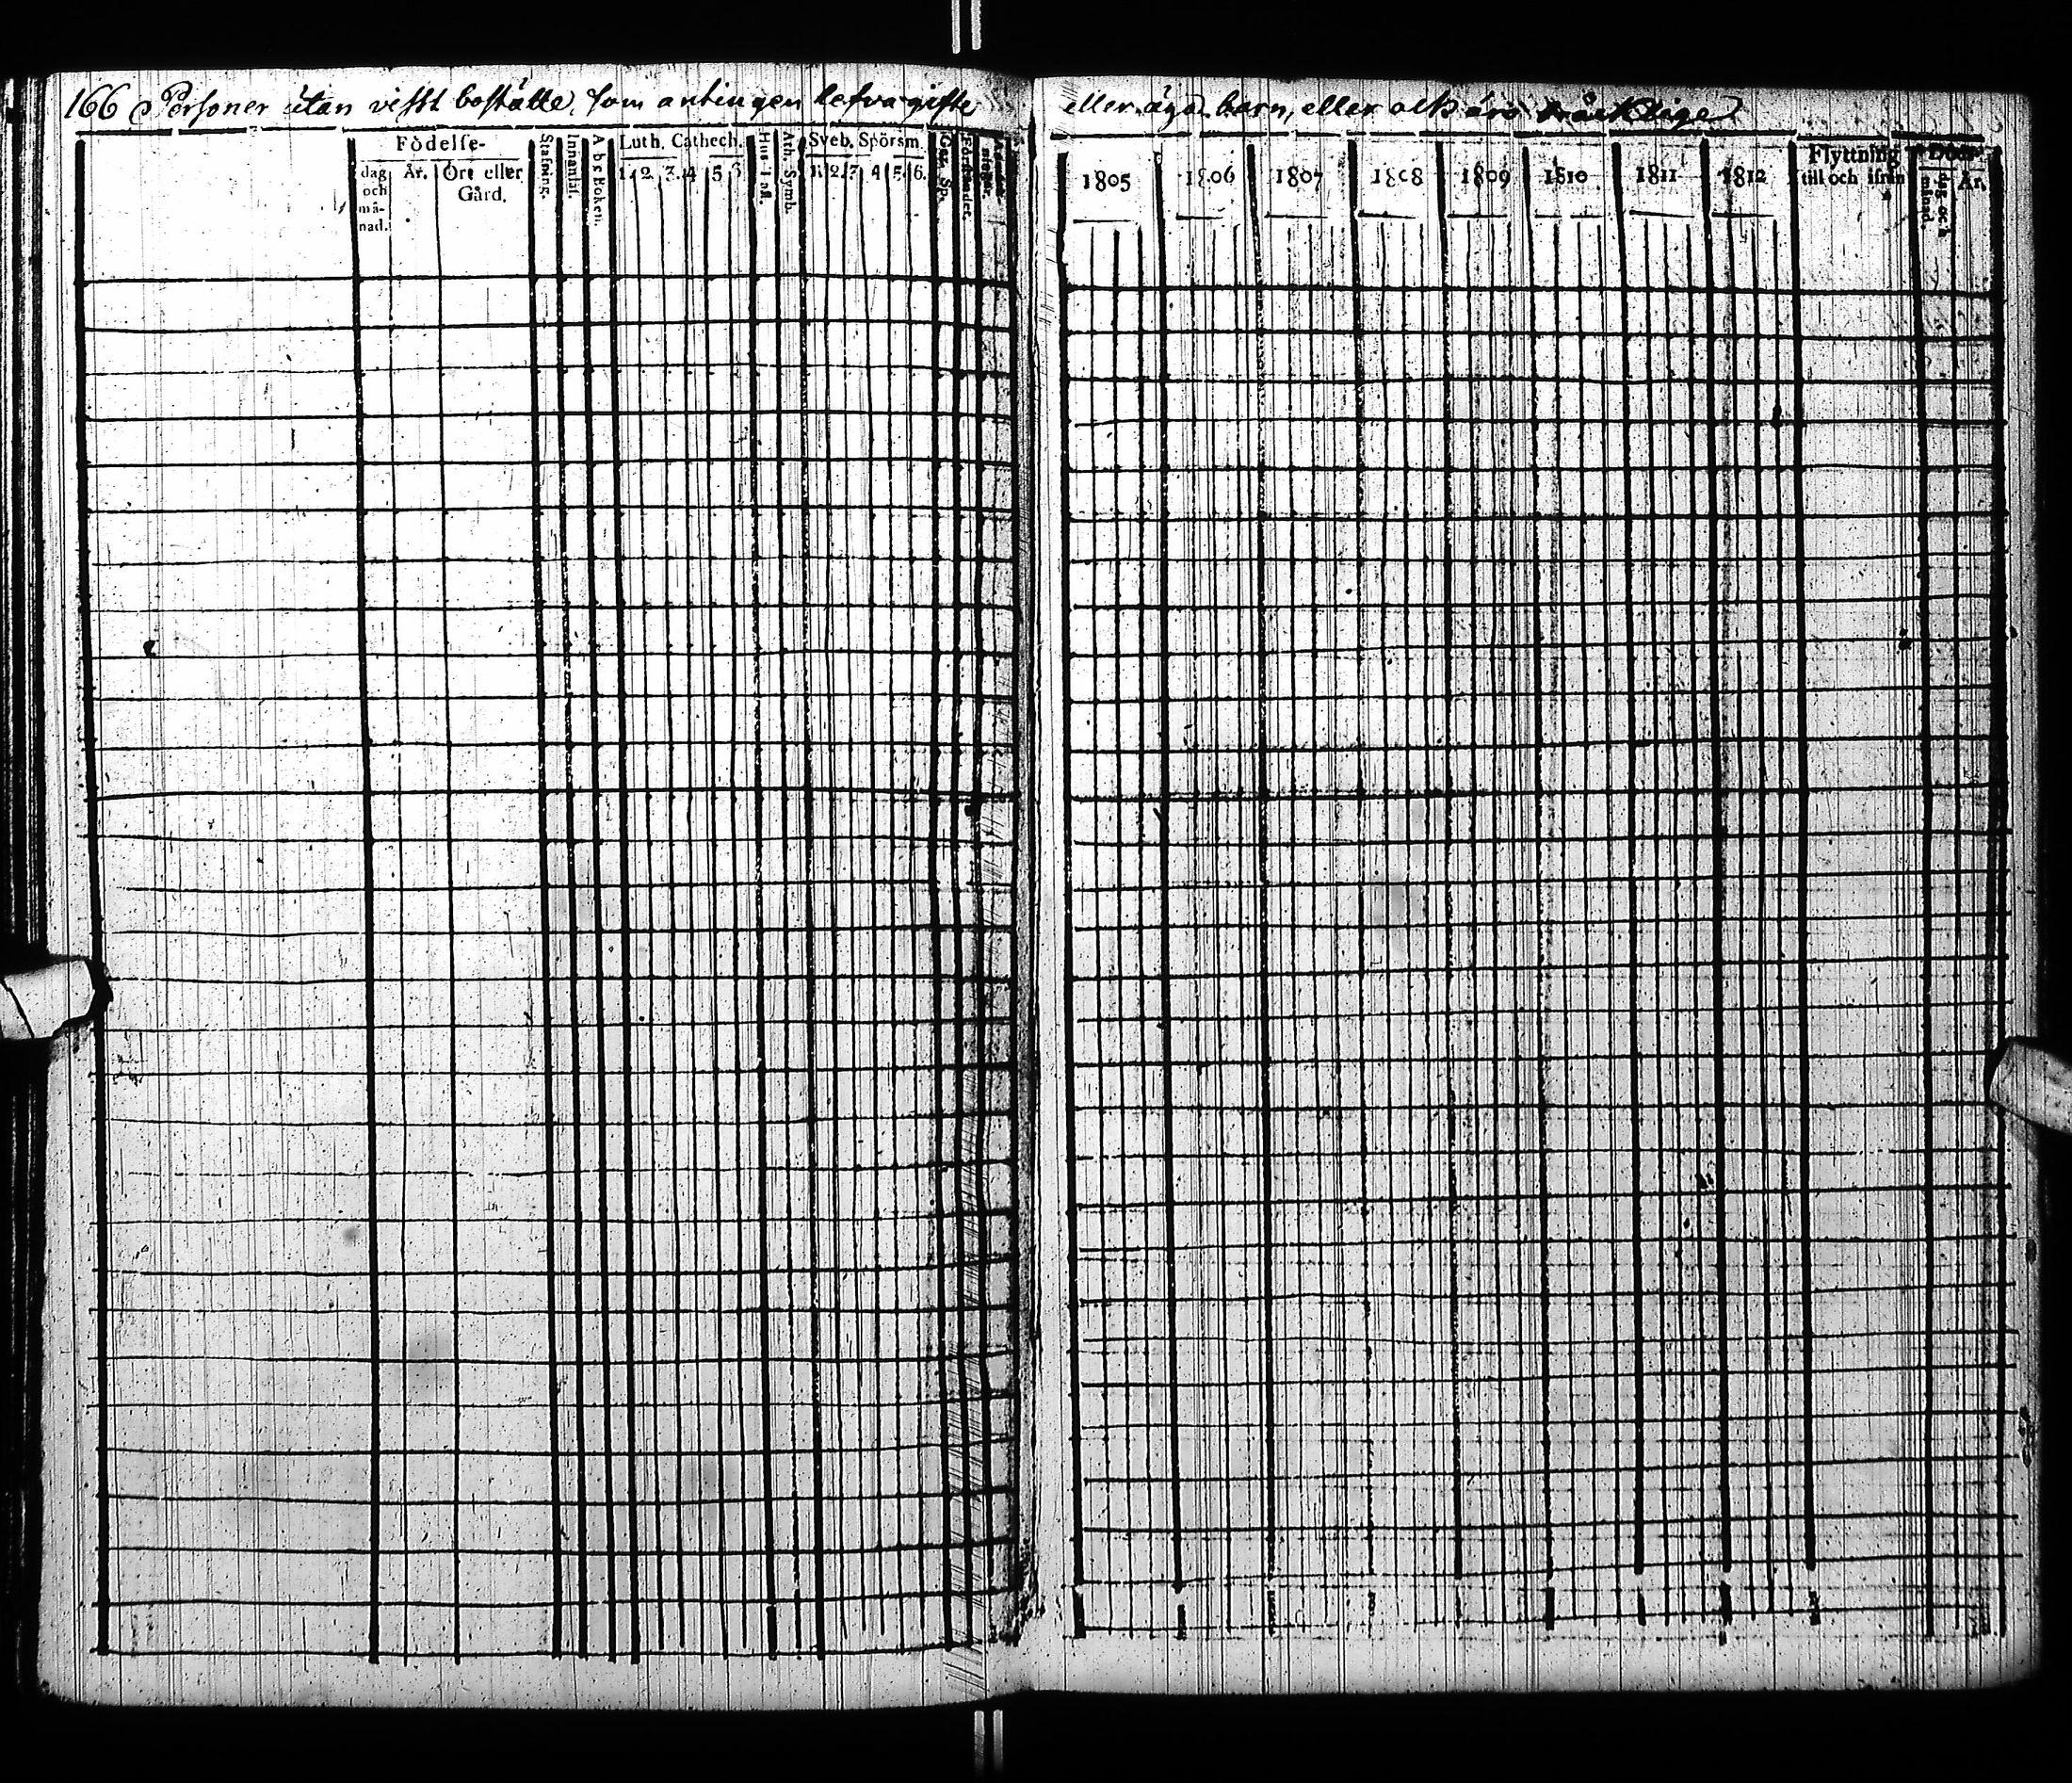 166 Personer utan visst boställe, som antingen lefva gifte
eller äga barn, eller ock äro bräcklige
Födelse-
dag och må- nad.
År.
Ort eller Gård.
Stafning.
Innanläs.
A b c Boken.
Luth. Cathech.
1. 2. 3. 4 5 6
Hus-Tafl.
Ath. Symb.
Sveb. Spörsm.
1. 2. 3 4 5. 6.
Ger. Sp.
Förståndet.
1805
1806
1807
1808
1809
1810
1811
1812
Flyttning
till och ifrån
Död
dag och månad.
År.